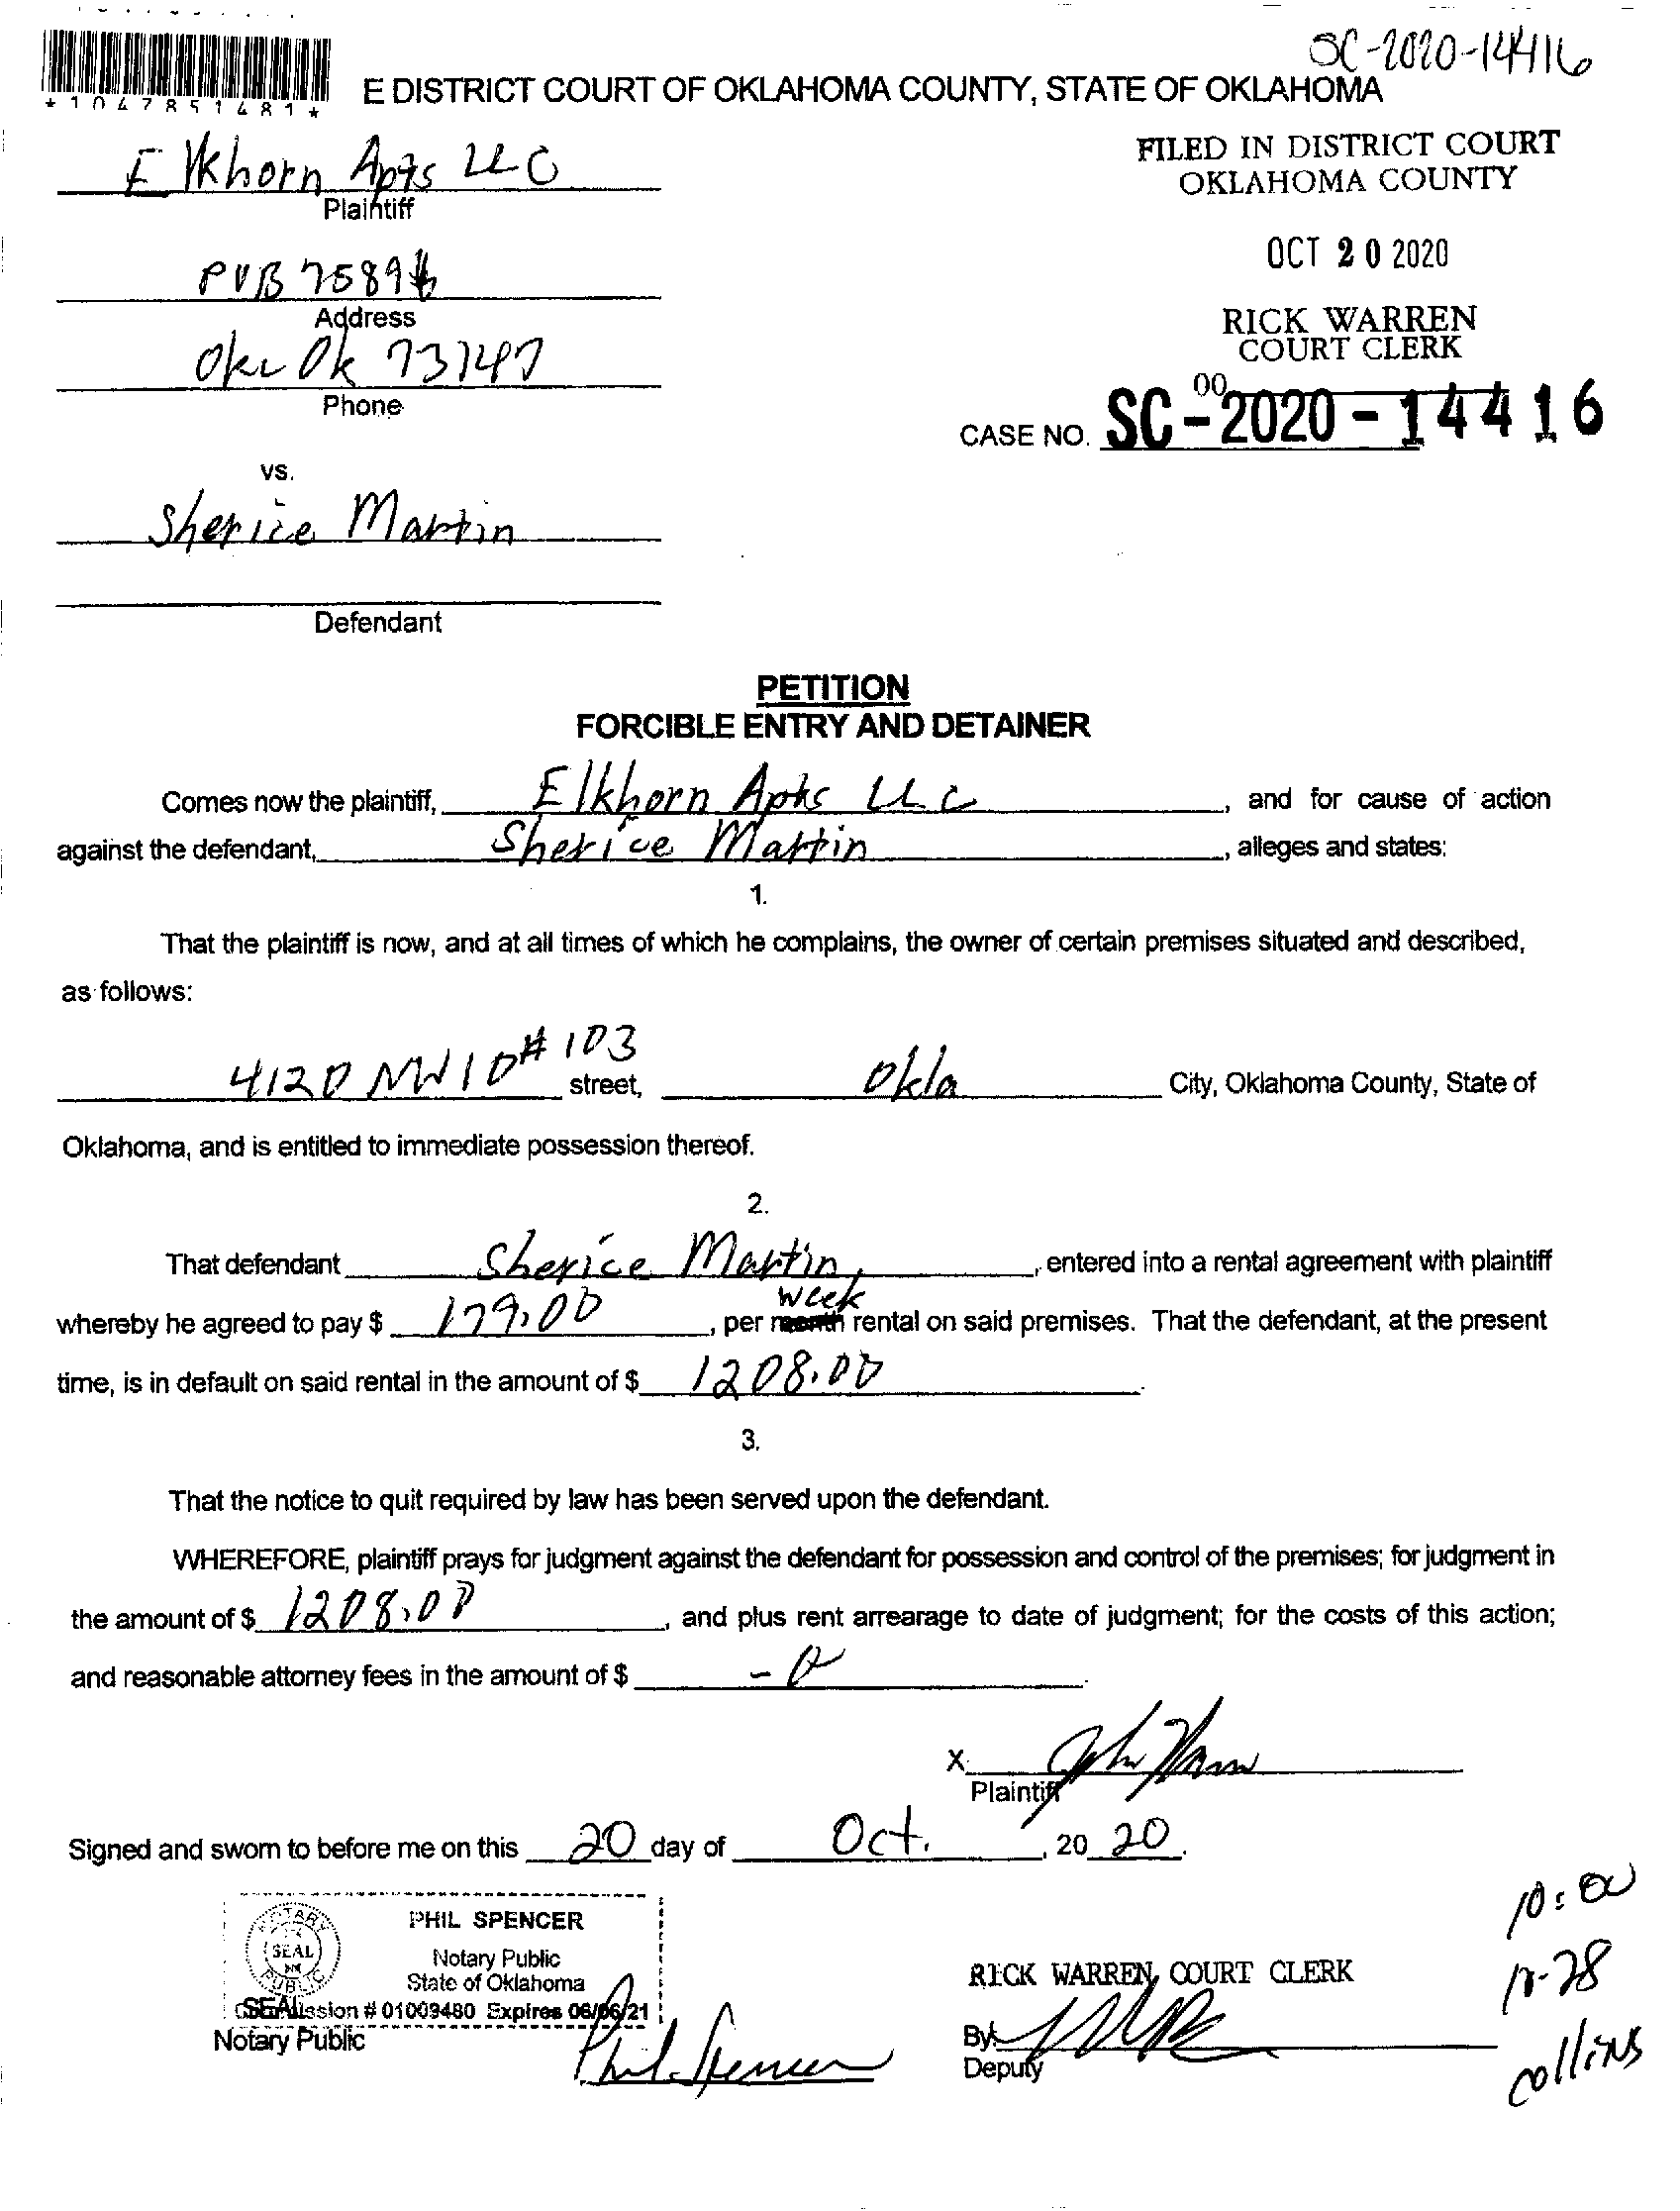 SC-2020-14416
*1047851481*
E DISTRICT COURT OF OKLAHOMA COUNTY, STATE OF OKLAHOMA
Elkhorn Apts LLC
Plaintiff
FILED IN DISTRICT COURT
OKLAHOMA COUNTY
OCT 20 2020
Address
RICK WARREN
COURT CLERK
Ok 73147
Phone
CASE NO. SC-2020-14416
vs.
Sherice Martin
Defendant
PETITION
FORCIBLE ENTRY AND DETAINER
Comes now the plaintiff, Elkhorn Apts LLC, and for cause of action
against the defendant, Sherice Martin, alleges and states:
1.
That the plaintiff is now, and at all times of which he complains, the owner of certain premises situated and described,
as follows:
4120 NW 10 #103 street, Okla City, Oklahoma County, State of
Oklahoma, and is entitled to immediate possession thereof.
2.
That defendant Sherice Martin, entered into a rental agreement with plaintiff
week
whereby he agreed to pay $ 179.00, per month rental on said premises. That the defendant, at the present
time, is in default on said rental in the amount of $ 1208.00.
3.
That the notice to quit required by law has been served upon the defendant.
WHEREFORE, plaintiff prays for judgment against the defendant for possession and control of the premises; for judgment in
the amount of $ 1208.00, and plus rent arrearage to date of judgment; for the costs of this action;
and reasonable attorney fees in the amount of $
X
Plaintiff
Signed and sworn to before me on this 20 day of Oct., 20 20.
NOTARY PUBLIC
SEAL
PHIL SPENCER
Notary Public
State of Oklahoma
Commission # 01009480 Expires 06/06/21
SEAL
Notary Public
Phil Spencer
RICK WARREN, COURT CLERK
By
Deputy
10:00
collins